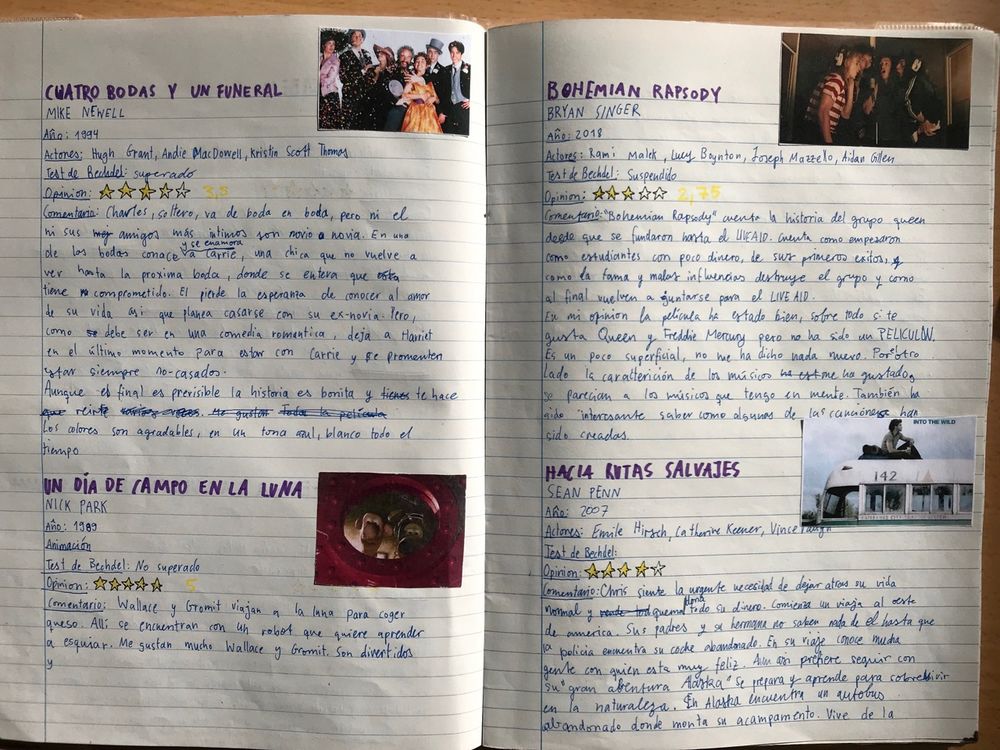 CUATRO BODAS Y UN FUNERAL
MIKE NEWELL
Año: 1994
Actores: Hugh Grant, Andie MacDowell, Kristin Scott Thomas
Test de Bechdel: superado
Opinion: 3,5
Comentario: Charles, soltero, va de boda en boda, pero ni el
ni sus amigos más intimos son novio o novia. En una
de las bodas conoce y se enamora a Carrie, una chica que no vuelve a
ver hasta la proxima boda, donde se entera que esta
tiene comprometido. El pierde la esperanza de conocer al amor
de su vida asi que planea casarse con su ex-novia. Pero,
como debe ser en una comedia romentica, deja a Harriet
en el último momento para estar con Carrie y se promenten
estar siempre no-casados.
Aunque el final es prerisible la historia es bonita y te hace
reirte
Los colores son agradables, en un tona azul, blanco todo el
tiempo
UN DÍA DE CAMPO EN LA LUNA
NICK PARK
Año: 1989
Animación
Test de Bechdel: No superado
Opinion: 5
Comentario: Wallace y Gromit viajan a la luna para coger
queso. Allí se encuentran con un robot que quiere aprender
a esquiar. Me gustan mucho Wallace y Gromit. Son divertidos
y
BOHEMIAN RAPSODY
BRYAN SINGER
año: 2018
Actores: Rami Malek, Lucy Boynton, Joseph Mazzello, Aidan Gillen
Test de Bechdel: Suspendido
Opinion: 2,75
Comentario: "Bohemian Rapsody" cuenta la historia del grupo queen
desde que se fundaron hasta el LIVE AID. Cuenta como empezaron
como estudiantes con poco dinero, de sus primeros exitos,
como la fama y malas influencias destruye el grupo y como
al final vuelven a juntarse para el LIVE AID.
En mi opinion la pelicula ha estado bien, sobre todo si te
gusta Queen y Freddie Mercury pero no ha sido un PELICULÓN.
Es un poco superficial, no me ha dicho nada nuevo. Por otro
lado la caracterición de los músicos me ha gustado,
se parecian a los músicos que tengo en mente. También ha
sido interesante saber como algunas de las canciones han
sido creadas.
INTO THE WILD
142
HACIA RUTAS SALVAJES
SEAN PENN
Año: 2007
Actores: Emile Hirsch, Catherine Keener, Vince Vaughn
Test de Bechdel:
Opinion:
Comentario: Chris siente la urgente necesidad de dejar atras su vida
normal y quema dona todo su dinero. Comienza un viaja al oeste
de america. Sus padres y su hermana no saben nada de el hasta que
la policia encuentra su coche abandonado. En su viaje conoce mucha
gente con quien esta muy feliz. Aun asi prefiere seguir con
su "gran abentura Alaska" se prepara y aprende para sobrevivir
en la naturaleza. En Alaska encuentra un autobus
abandonado donde monta su acampamento. Vive de la